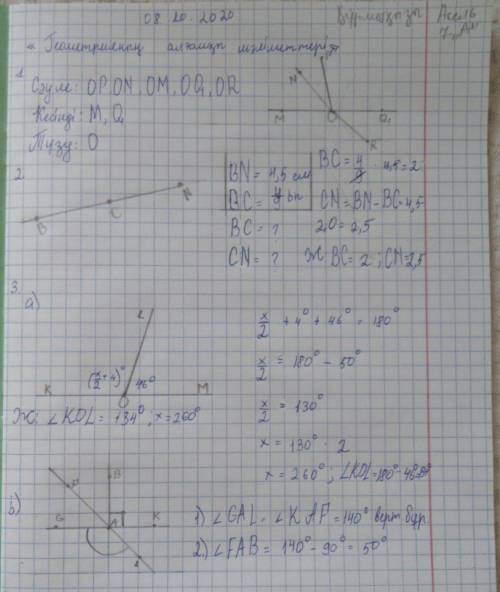 08.10.2020
Асель
«Геометрияның алғашқы мәліметтері»
1.
Сәуле: OP, ON, OM, OQ, OR
Кесінді: M, Q
Түзу: O
N M O Q K
2.
B C N
BN = 4,5 см
BC = 4/9 BN
BC = ?
CN = ?
BC = 4/9 · 4,5 = 2
CN = BN - BC = 4,5-
2,0 = 2,5
Ж: BC = 2; CN = 2,5
3.
a)
L
(x/2 + 4)° 46°
K O M
Ж: ∠KOL = 134°; x = 260°
x/2 + 4° + 46° = 180°
x/2 = 180° - 50°
x/2 = 130°
x = 130° · 2
x = 260°; ∠KOL = 180° - 46°
b)
F B
G A K
L
1) ∠GAL = ∠KAF = 140° верт бұр.
2) ∠FAB = 140° - 90° = 50°